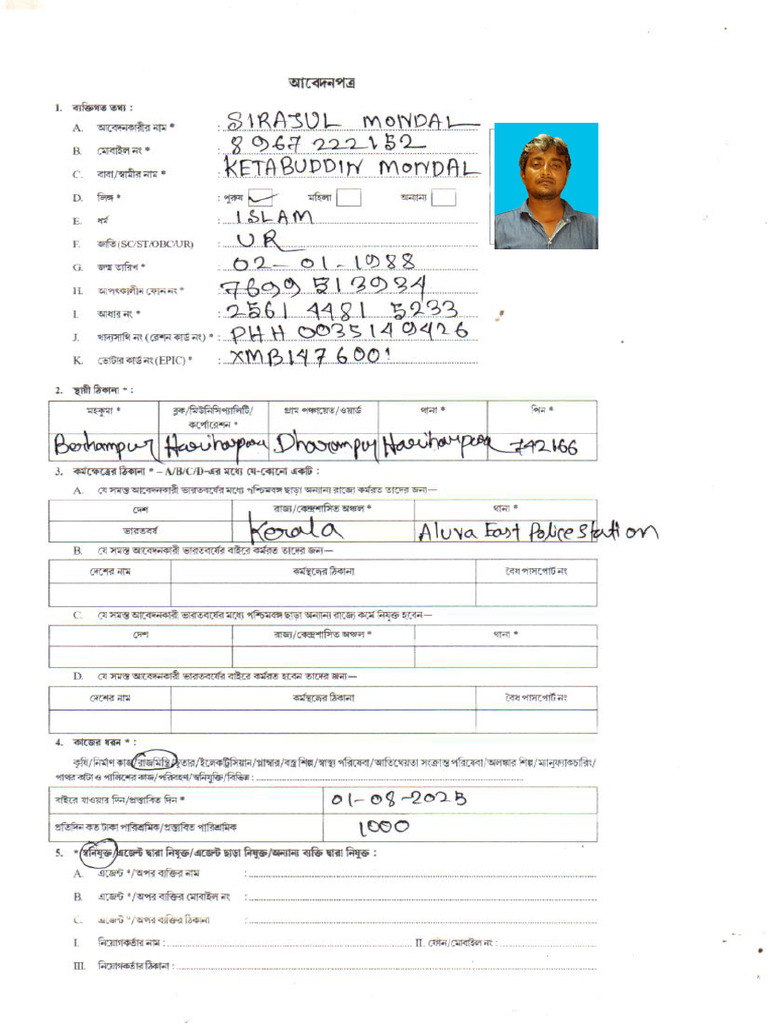 আবেদনপত্র
1. ব্যক্তিগত তথ্য :
A. আবেদনকারীর নাম * : SIRAJUL MONDAL
B. মোবাইল নং * : 8967222152
C. বাবা/স্বামীর নাম * : KETABUDDIN MONDAL
D. লিঙ্গ * : পুরুষ ✓ মহিলা অন্যান্য
E. ধর্ম : ISLAM
F. জাতি (SC/ST/OBC/UR) UR
G. জন্ম তারিখ * : 02-01-1988
H. আপৎকালীন ফোন নং * : 7699513934
I. আধার নং * : 2561 4481 5233
J. খাদ্যসাথি নং (রেশন কার্ড নং) * : PHH 0035149426
K. ভোটার কার্ড নং (EPIC) * : XMB1476001
2. স্থায়ী ঠিকানা * :
মহকুমা * ব্লক/মিউনিসিপ্যালিটি/ গ্রাম পঞ্চায়েত/ওয়ার্ড থানা * পিন *
কর্পোরেশন *
Berhampur Hariharpara Dharampur Hariharpara 742166
3. কর্মক্ষেত্রের ঠিকানা * – A/B/C/D-এর মধ্যে যে-কোনো একটি :
A. যে সমস্ত আবেদনকারী ভারতবর্ষের মধ্যে পশ্চিমবঙ্গ ছাড়া অন্যান্য রাজ্যে কর্মরত তাদের জন্য—
দেশ রাজ্য/কেন্দ্রশাসিত অঞ্চল * থানা *
ভারতবর্ষ Kerala Aluva East Police Station
B. যে সমস্ত আবেদনকারী ভারতবর্ষের বাইরে কর্মরত তাদের জন্য—
দেশের নাম কর্মস্থলের ঠিকানা বৈধ পাসপোর্ট নং
C. যে সমস্ত আবেদনকারী ভারতবর্ষের মধ্যে পশ্চিমবঙ্গ ছাড়া অন্যান্য রাজ্যে কর্মে নিযুক্ত হবেন—
দেশ রাজ্য/কেন্দ্রশাসিত অঞ্চল * থানা *
D. যে সমস্ত আবেদনকারী ভারতবর্ষের বাইরে কর্মরত হবেন তাদের জন্য—
দেশের নাম কর্মস্থলের ঠিকানা বৈধ পাসপোর্ট নং
4. কাজের ধরন * :
কৃষি/নির্মাণ কাজ/রাজমিস্ত্রি/ছুতার/ইলেকট্রিসিয়ান/প্লাম্বার/বস্ত্র শিল্প/স্বাস্থ্য পরিষেবা/আতিথেয়তা সংক্রান্ত পরিষেবা/অলঙ্কার শিল্প/ম্যানুফ্যাকচারিং/
পাথর কাটা ও পালিশের কাজ/পরিবহণ/স্বনিযুক্তি/বিভিন্ন :
বাইরে যাওয়ার দিন/প্রস্তাবিত দিন * 01-08-2025
প্রতিদিন কত টাকা পারিশ্রমিক/প্রস্তাবিত পারিশ্রমিক 1000
5. * স্বনিযুক্ত/এজেন্ট দ্বারা নিযুক্ত/এজেন্ট ছাড়া নিযুক্ত/অন্যান্য ব্যক্তি দ্বারা নিযুক্ত :
A. এজেন্ট */অপর ব্যক্তির নাম :
B. এজেন্ট */অপর ব্যক্তির মোবাইল নং :
C. এজেন্ট */অপর ব্যক্তির ঠিকানা :
I. নিয়োগকর্তার নাম : II. ফোন/মোবাইল নং :
III. নিয়োগকর্তার ঠিকানা :